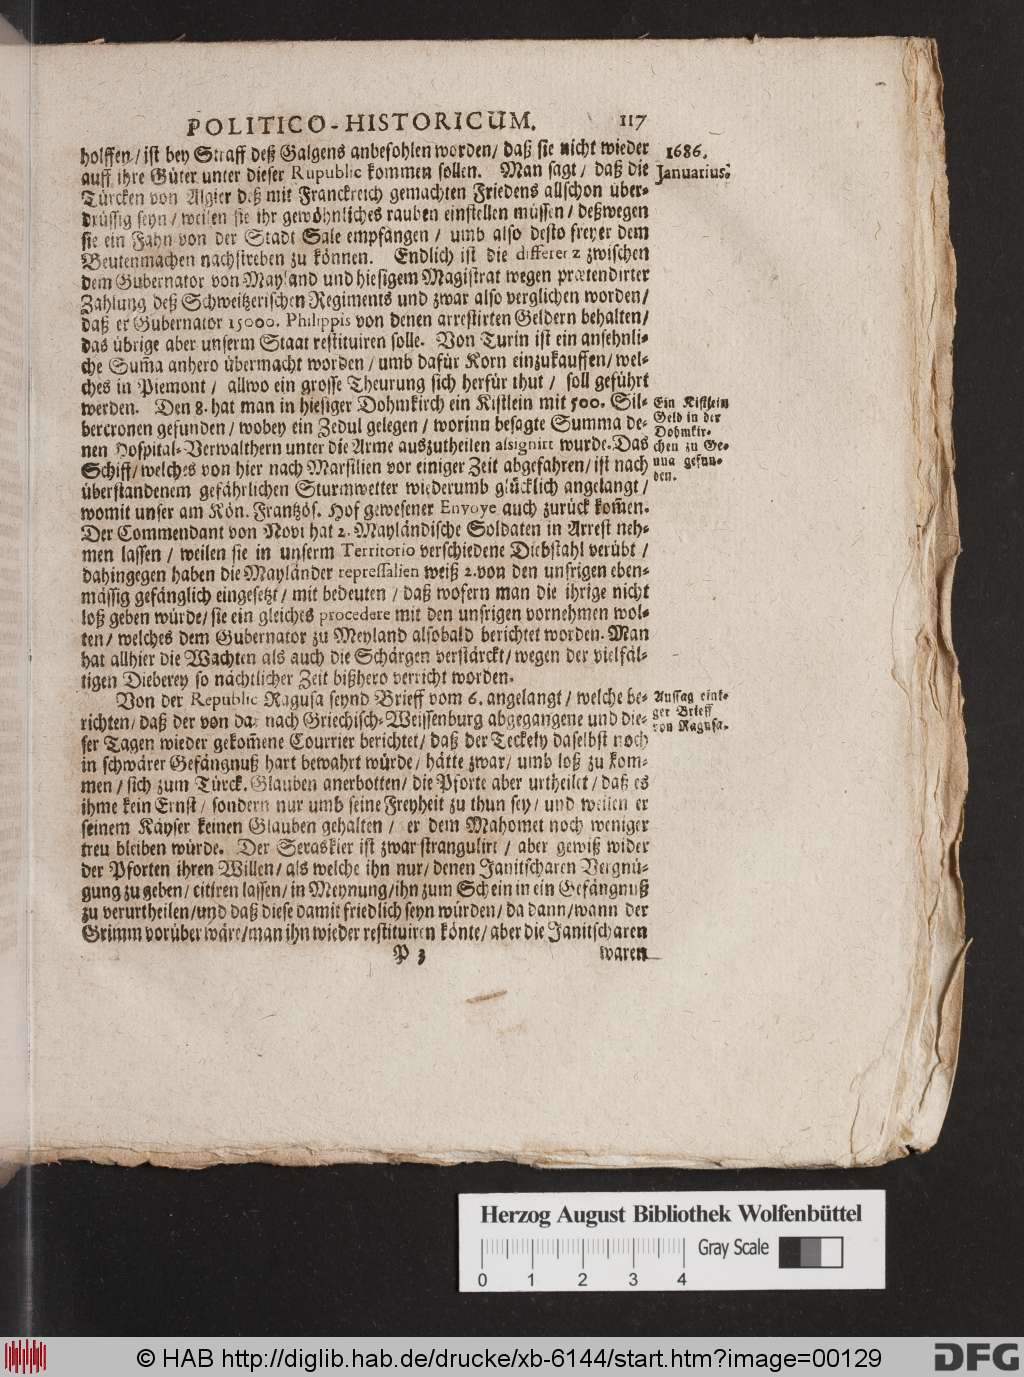 POLITICO-HISTORICUM. 117
holffen/ ist bey Straff deß Galgens anbefohlen worden/ daß sie nicht wieder
auff ihre Güter unter dieser Rupublic kommen sollen. Man sagt/ daß die
Türcken von Algier deß mit Franckreich gemachten Friedens allschon über-
drüssig seyn/ weilen sie ihr gewöhnliches rauben einstellen müssen/ deßwegen
sie ein Fahn von der Stadt Sale empfangen/ umb also desto freyer dem
Beutenmachen nachstreben zu können. Endlich ist die differenz zwischen
dem Gubernator von Mayland und hiesigem Magistrat wegen prætendirter
Zahlung deß Schweitzerischen Regiments und zwar also verglichen worden/
daß er Gubernator 15000. Philippis von denen arrestirten Geldern behalten/
das übrige aber unserm Staat restituiren solle. Von Turin ist ein ansehnli-
che Sum̃a anhero übermacht worden/ umb dafür Korn einzukauffen/ wel-
ches in Piemont/ allwo ein grosse Theurung sich herfür thut/ soll geführt
werden. Den 8. hat man in hiesiger Dohmkirch ein Kistlein mit 500. Sil-
bercronen gefunden/ wobey ein Zedul gelegen/ worinn besagte Summa de-
nen Hospital-Verwalthern unter die Arme auszutheilen assignirt wurde. Das
Schiff/ welches von hier nach Marsilien vor einiger Zeit abgefahren/ ist nach
überstandenem gefährlichen Sturmwetter wiederumb glücklich angelangt/
womit unser am Kön. Frantzös. Hof gewesener Envoye auch zurück kom̃en.
Der Commendant von Novi hat 2. Mayländische Soldaten in Arrest neh-
men lassen/ weilen sie in unserm Territorio verschiedene Diebstahl verübt/
dahingegen haben die Mayländer repressalien weiß 2. von den unsrigen eben-
mässig gefänglich eingesetzt/ mit bedeuten/ daß wofern man die ihrige nicht
loß geben würde/ sie ein gleiches procedere mit den unsrigen vornehmen wol-
ten/ welches dem Gubernator zu Meyland alsobald berichtet worden. Man
hat allhier die Wachten als auch die Schärgen verstärckt/ wegen der vielfäl-
tigen Dieberey so nächtlicher Zeit bißhero verricht worden.
Von der Republic Ragusa seynd Brieff vom 6. angelangt/ welche be-
richten/ daß der von dar nach Griechisch-Weissenburg abgegangene und die-
ser Tagen wieder gekom̃ene Courrier berichtet/ daß der Teckely daselbst noch
in schwärer Gefängnuß hart bewahrt würde/ hätte zwar/ umb loß zu kom-
men/ sich zum Türck. Glauben anerbotten/ die Pforte aber urtheilet/ daß es
ihme kein Ernst/ sondern nur umb seine Freyheit zu thun sey/ und weilen er
seinem Käyser keinen Glauben gehalten/ er dem Mahomet noch weniger
treu bleiben würde. Der Seraskier ist zwar strangulirt/ aber gewiß wider
der Pforten ihren Willen/ als welche ihn nur/ denen Janitscharen Vergnü-
gung zu geben/ citiren lassen/ in Meynung/ ihn zum Schein in ein Gefängnuß
zu verurtheilen/ und daß diese damit friedlich seyn würden/ da dann/ wann der
Grimm vorüber wäre/ man ihn wieder restituiren könte/ aber die Janitscharen
P 3 waren
1686.
Januarius.
Ein Kistlein
Geld in der
Dohmkir-
chen zu Ge-
nua gefun-
den.
Aussag eini-
ger Brieff
von Ragusa.
Herzog August Bibliothek Wolfenbüttel
Gray Scale
0 1 2 3 4
© HAB http://diglib.hab.de/drucke/xb-6144/start.htm?image=00129
DFG